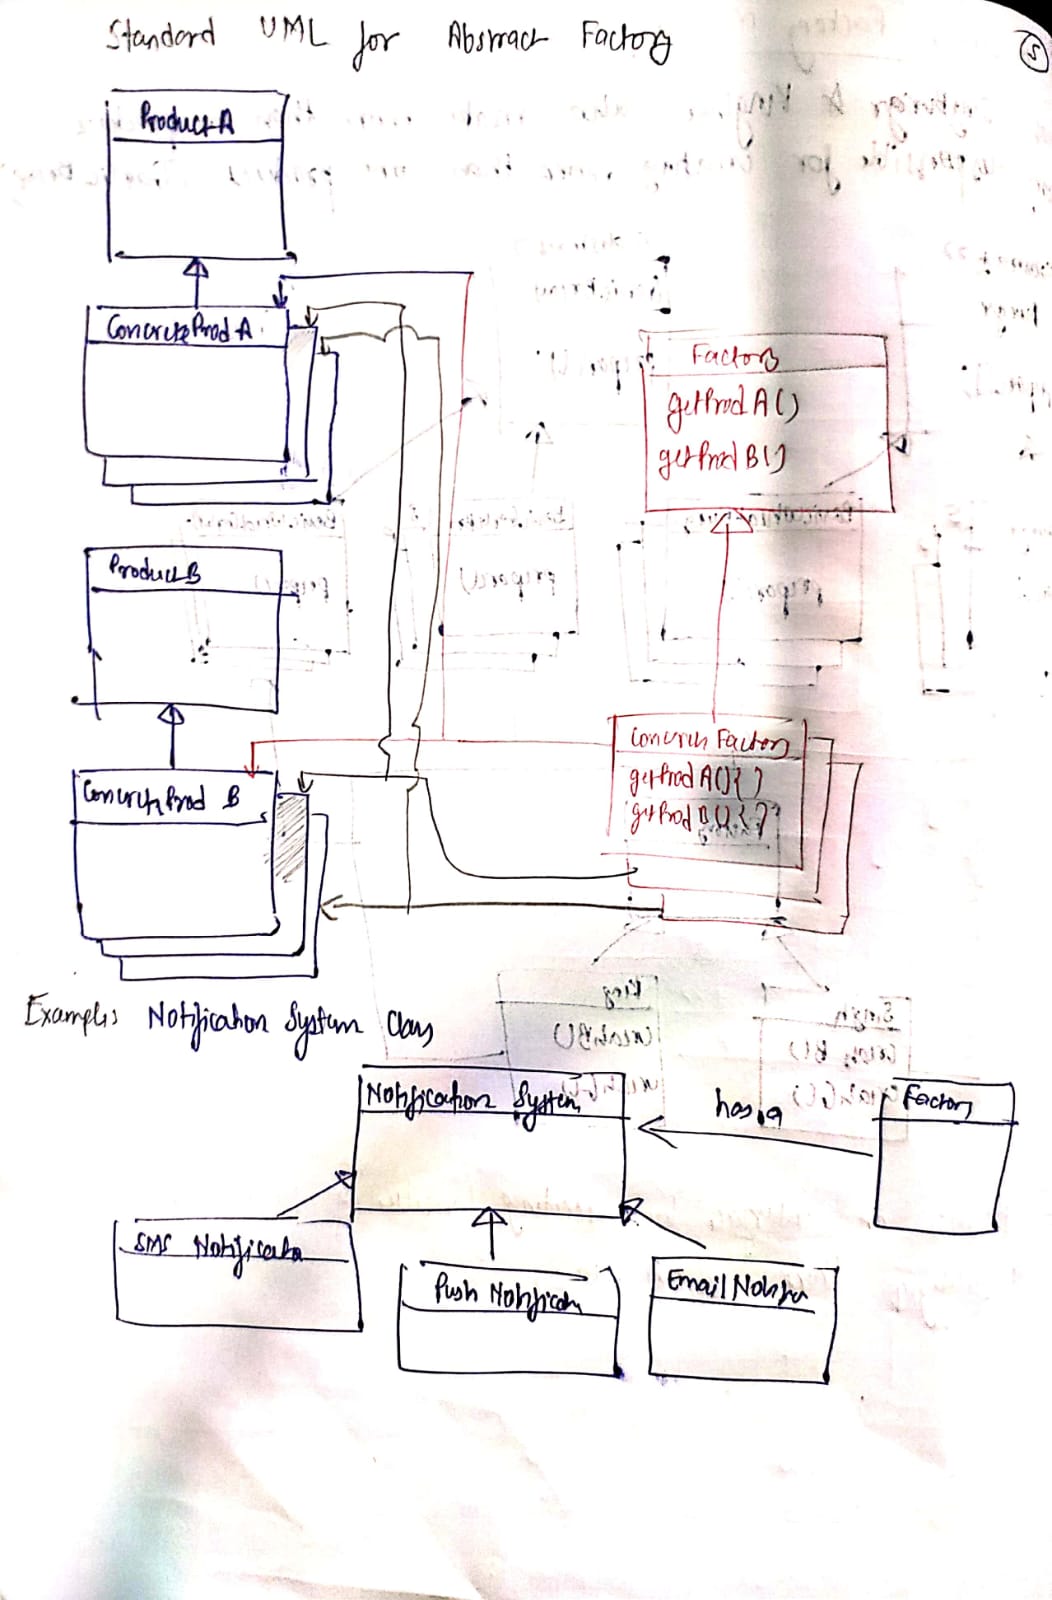 Standard UML for Abstract Factory
5
Product A
Concrete Prod A
Factory
getProd A()
getProd B()
Product B
Concrete Factory
getProd A(){ }
getProd B(){ }
Concrete Prod B
Examples Notification System Class
Notification System
has a
Factory
SMS Notificatn
Push Notificatn
Email Notifn